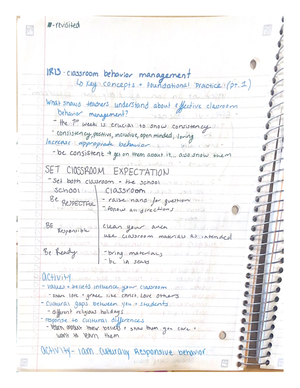 #-revisited
IRIS-classroom behavior management
↳ key concepts + Foundational Practice (pt. 1)
What should teachers understand about effective classroom
behavior management?
- the 1st week is crucial to show consistency
- consistency, positive, inclusive, open minded, loving
Increase appropriate behavior
- be consistent → get on them about it, also show them
SET CLASSROOM EXPECTATION
- Set both classroom + the school
SCHOOL classroom
Be RESPECTFUL - raise hand for question
- follow all directions
BE Responsible clean your area
use classroom materials as intended
Be Ready - bring materials
- be in seats
ACTIVITY
- values + beliefs influence your classroom
- love + grace like christ, love others
- cultural gaps between you + students
- different religious holidays
- response to cultural differences
- learn about their beliefs + show them you care +
want to learn them
ACTIVITY- Culturally Responsive behavior